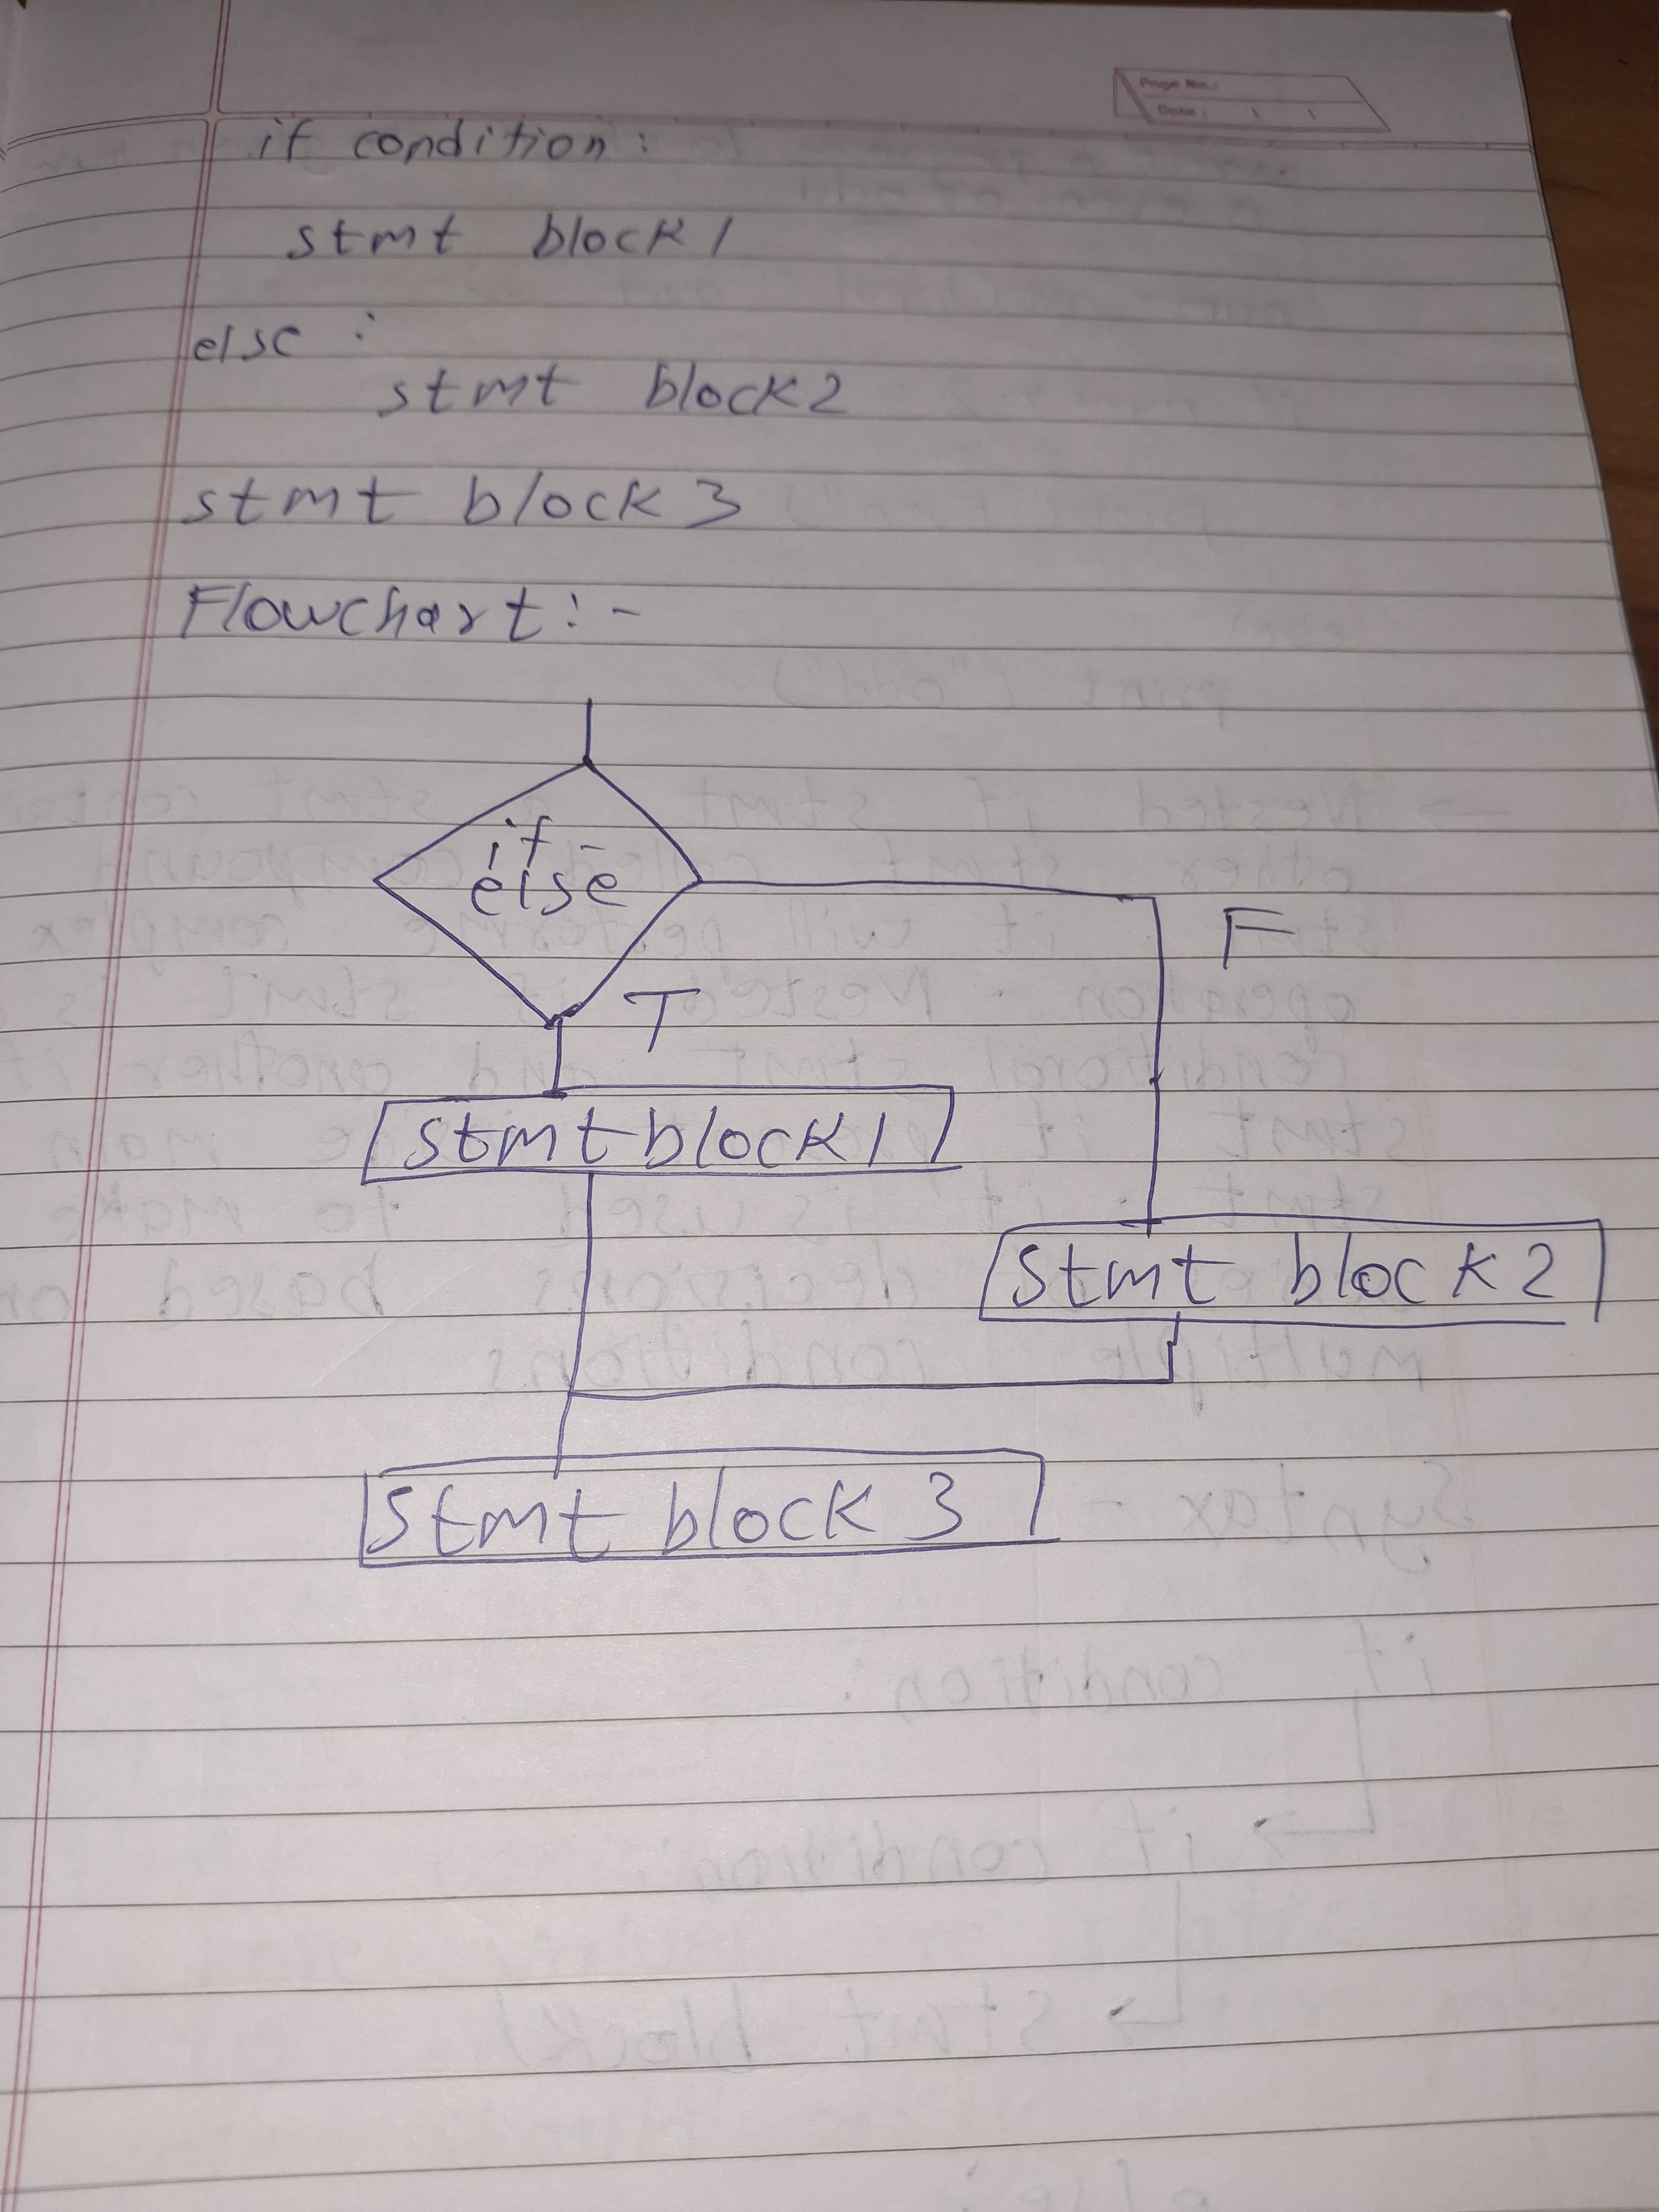 Page No.:
Date:
if condition:
stmt block1
else :
stmt block2
stmt block 3
Flowchart:-
if-
else
F
T
stmt block1
stmt block 2
stmt block 3